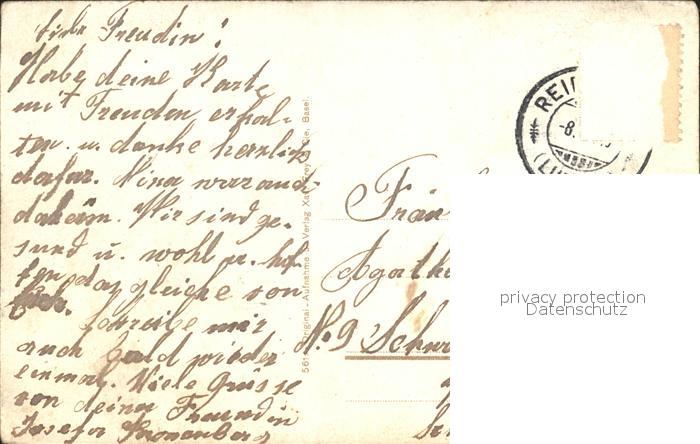 Liebe Freudin!
Habe deine Karte
mit Freuden erhal-
ten. u. danke herzlich
dafür. Nina war auch
daheim. Wir sind ge-
sund u. wohl u. hof-
fen das gleiche von
Euch.
Schreibe mir
auch bald wieder
einmal. Viele Grüsse
von deiner Freundin
Josefa Kronenberg
561 Original-Aufnahme u. Verlag Xav. Frey & Cie, Basel.
REID
-8.
(LU
Frän
Agath
No 9 Schw
privacy protection
Datenschutz